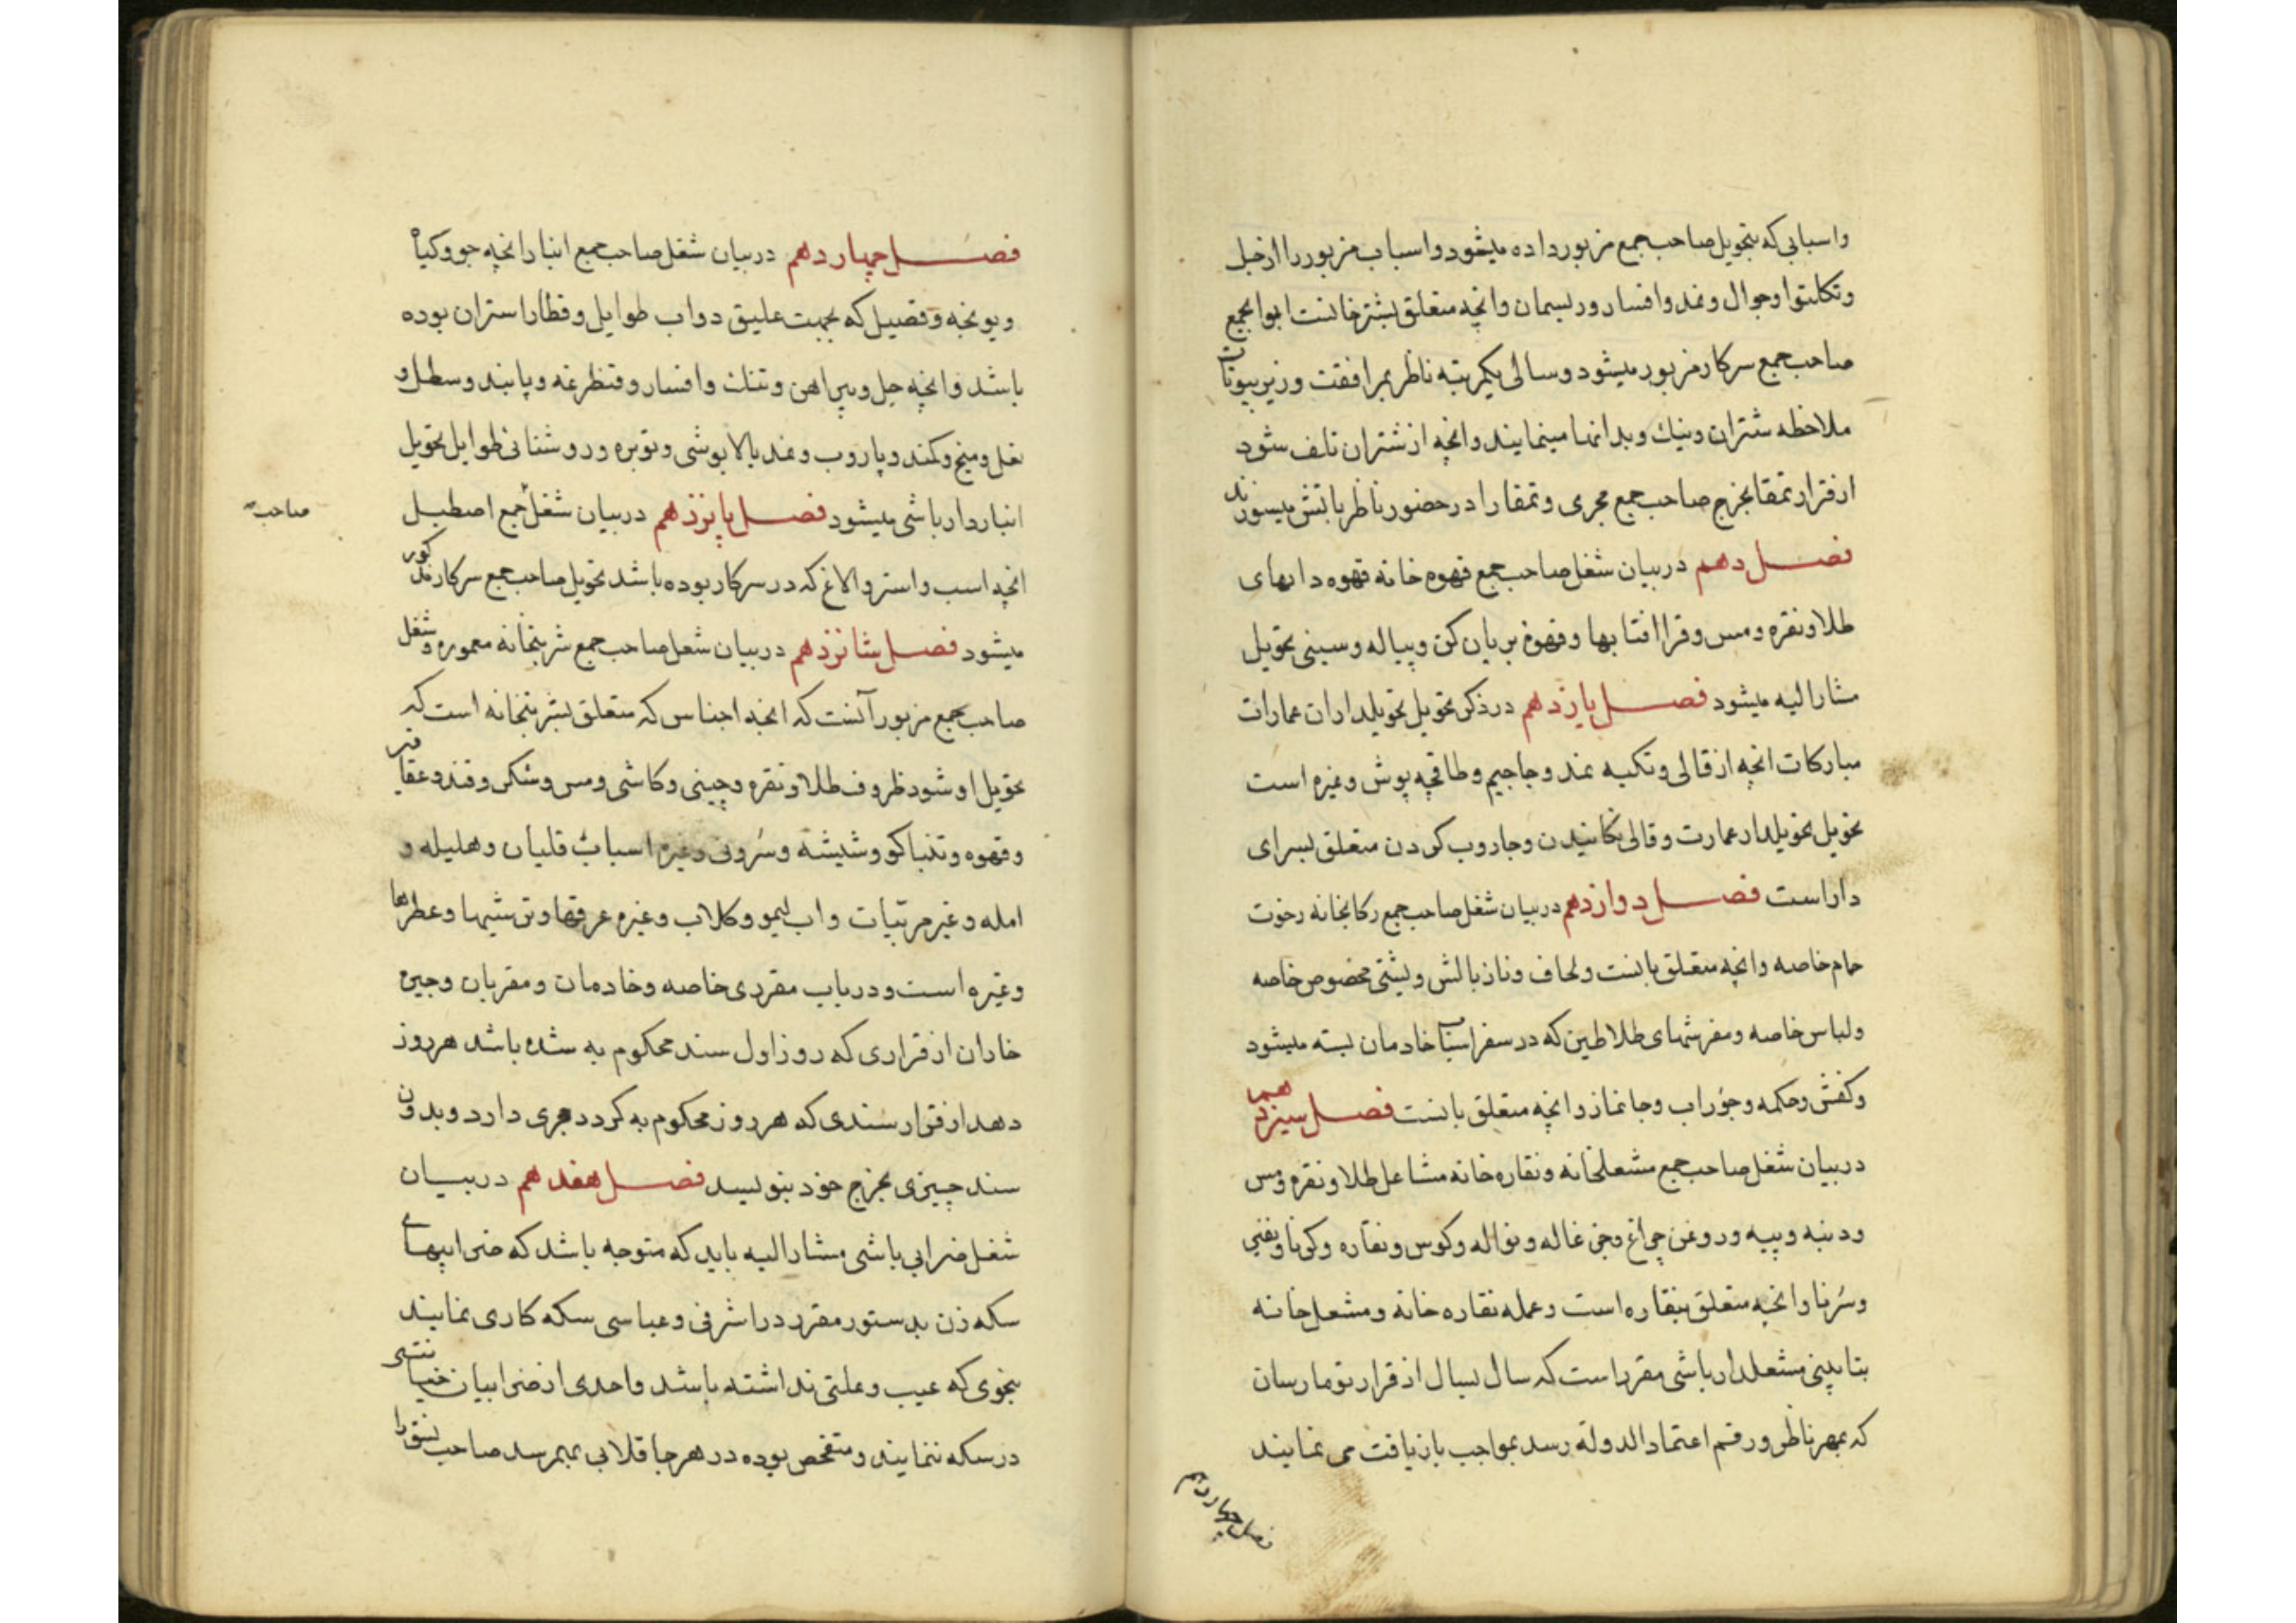 واسبابی که بتحویل صاحب جمع مزبور داده میشود واسباب مزبور را از جل
وتکلتو وجوال ونمد وافسار وریسمان وانچه متعلق بشترخانست ابوابجمع
صاحب جمع سرکار مزبور میشود وسالی یکمرتبه ناظر بمرافقت وزیر بیوتات
ملاحظه شتران ونیك وبد انها مینمایند وانچه از شتران تلف شود
از قرار تمقا بخرج صاحب جمع مجری وتمقا را در حضور ناظر باتش میسوزند
فصل دهم در بیان شغل صاحب جمع قهوه خانه قهوه دانهای
طلا ونقره ومس وقرا افتابها وقهوه بریان کن وپیاله وسینی تحویل
مشار الیه میشود فصل یازدهم در ذکر تحویل تحویلداران عمارات
مبارکات انچه از قالی وتکیه نمد وجاجیم وطاقچه پوش وغیره است
تحویل تحویلدار عمارت وقالی تکانیدن وجاروب کردن متعلق بسرای
دار است فصل دوازدهم در بیان شغل صاحب جمع رکابخانه رخوت
حمام خاصه وانچه متعلق بانست ولحاف وناز بالش وپشتی مخصوص خاصه
ولباس خاصه ومفرشهای طلاطین که در سفر اسباب خادمان بسته میشود
وکفش وچکمه وجوراب وجانماز وانچه متعلق بانست فصل سیزدهم
در بیان شغل صاحب جمع مشعلخانه ونقاره خانه مشاعل طلا ونقره ومس
ودنبه وپیه وروغن چراغ ونواله وکوس ونقاره وکرنا ونفیر
وسرنا وانچه متعلق بنقاره است وعمله نقاره خانه ومشعل خانه
بتابینی مشعلدار باشی مقرر است که سال بسال از قرار تومارسان
که بمهر ناظر ورقم اعتماد الدوله رسد بمواجب بازیافت می نمایند
فصل چهاردهم
فصل چهاردهم در بیان شغل صاحب جمع انبار انچه جو وکیاه
ویونجه وقصیل که بجهت علیق دواب طوایل وقطار استران بوده
باشد وانچه جل وپیراهن وتنك وافسار وقنطرغه وپابند وسطل و
نعل ومیخ وکمند وپاروب ونمد بالاپوشی وتوبره وروشنائی طوایل تحویل
انباردار باشی میشود فصل پانزدهم در بیان شغل جمع اصطبل
صاحب
انچه اسب واستر والاغ که در سرکار بوده باشد تحویل صاحب جمع سرکار مذکور
میشود فصل شانزدهم در بیان شغل صاحب جمع شربتخانه معموره وشغل
صاحب جمع مزبور آنست که انچه اجناس که متعلق بشربتخانه است که
تحویل او شود ظروف طلا ونقره وچینی وکاشی ومس وشکر وقند وعقاقیر
وقهوه وتنباکو وشیشه وسرون وغیره اسباب قلیان وهلیله و
امله وغیر مربیات واب لیمو وکلاب وغیره عرقها وترشیها وعطرها
وغیره است ودر باب مقرری خاصه وخادمان ومقربان وجیره
خاران از قراری که روز اول سند محکوم به شده باشد هر روز
دهد از قرار سندی که هر روز محکوم به کردد مجری دارد وبدون
سند چیزی بخرج خود ننویسد فصل هفدهم در بیان
شغل ضرابی باشی مشار الیه باید که متوجه باشد که ضرابیهای
سکه زن بدستور مقرر در اشرفی وعباسی سکه کاری نمایند
بنحوی که عیب وعلتی نداشته باشد واحدی از ضرابیان خیانتی
در سکه ننمایند ومتفحص بوده در هر جا قلابی بهم رسد صاحب نسق را